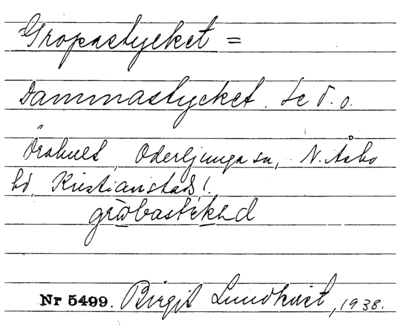 Gropastycket =
Dammastycket. Se d. o.
Örahult, Oderljunga sn, N. Åsbo
hd, Kristianstads l.
Nr 5499. Birgit Lundkvist, 1938.